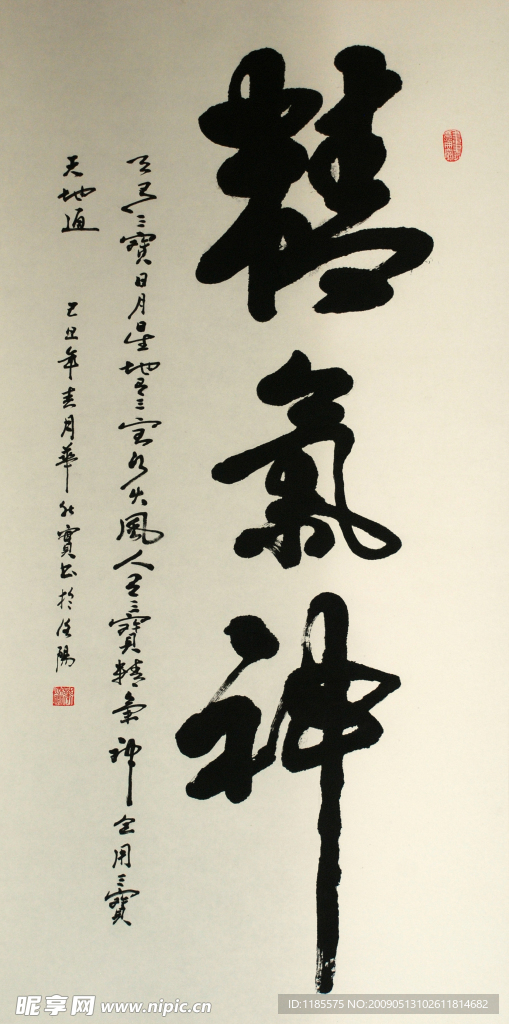 精氣神
天有三寶日月星地有三宝水火風人有三寶精氣神会用三寶
天地通
己丑年春月華實書於洛陽
昵享网 www.nipic.cn
ID:1185575 NO:20090513102611814682